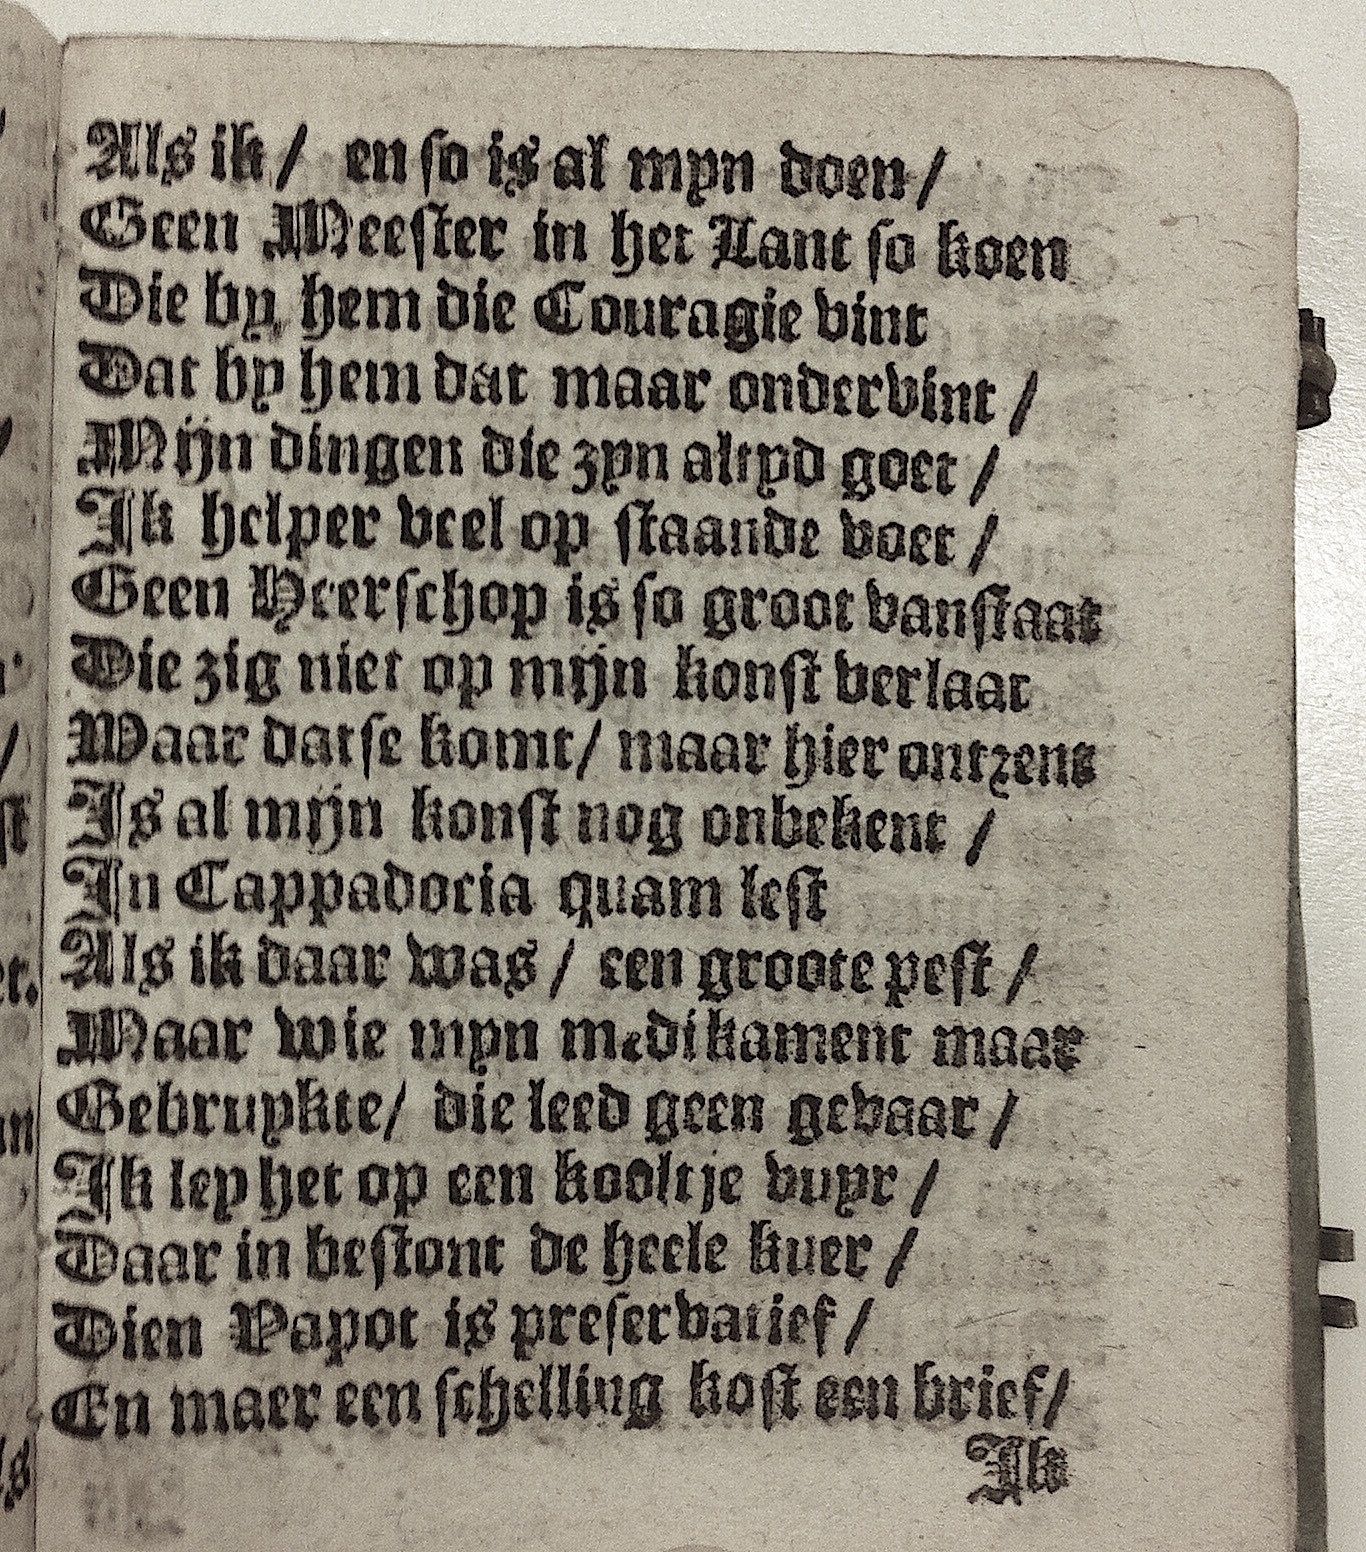 Als ik / en so is al myn doen /
Geen Meester in het Lant so koen
Die by hem die Couragie vint
Dat hy hem dat maar ondervint /
Mijn dingen die zyn altyd goet /
Ik helper veel op staande voet /
Geen Heerschop is so groot van staat
Die zig niet op mijn konst verlaat
Waar datse komt / maar hier ontrent
Is al mijn konst nog onbekent /
In Cappadocia quam lest
Als ik daar was / een groote pest /
Maar wie myn medikament maar
Gebruykte / die leed geen gevaar /
Ik ley het op een kooltje vuyr /
Daar in bestont de heele kuer /
Dien Papot is preservatief /
En maer een schelling kost een brief /
Ik